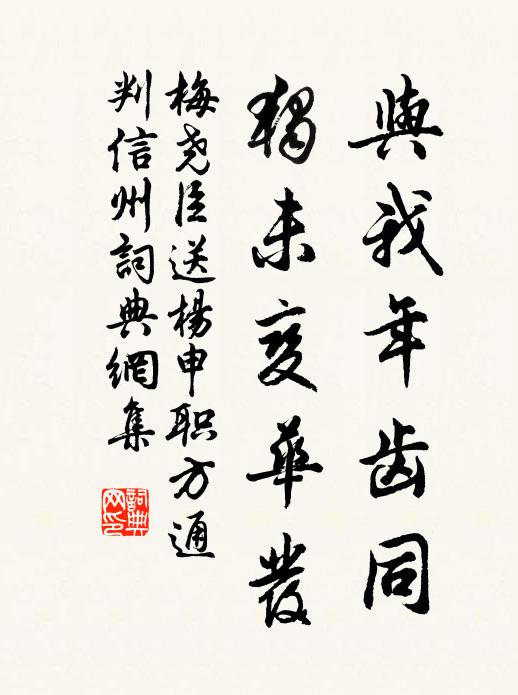 與我年齿同
獨未变華發
梅尧臣送楊申职方通
判信州詞典網集
詞典网印